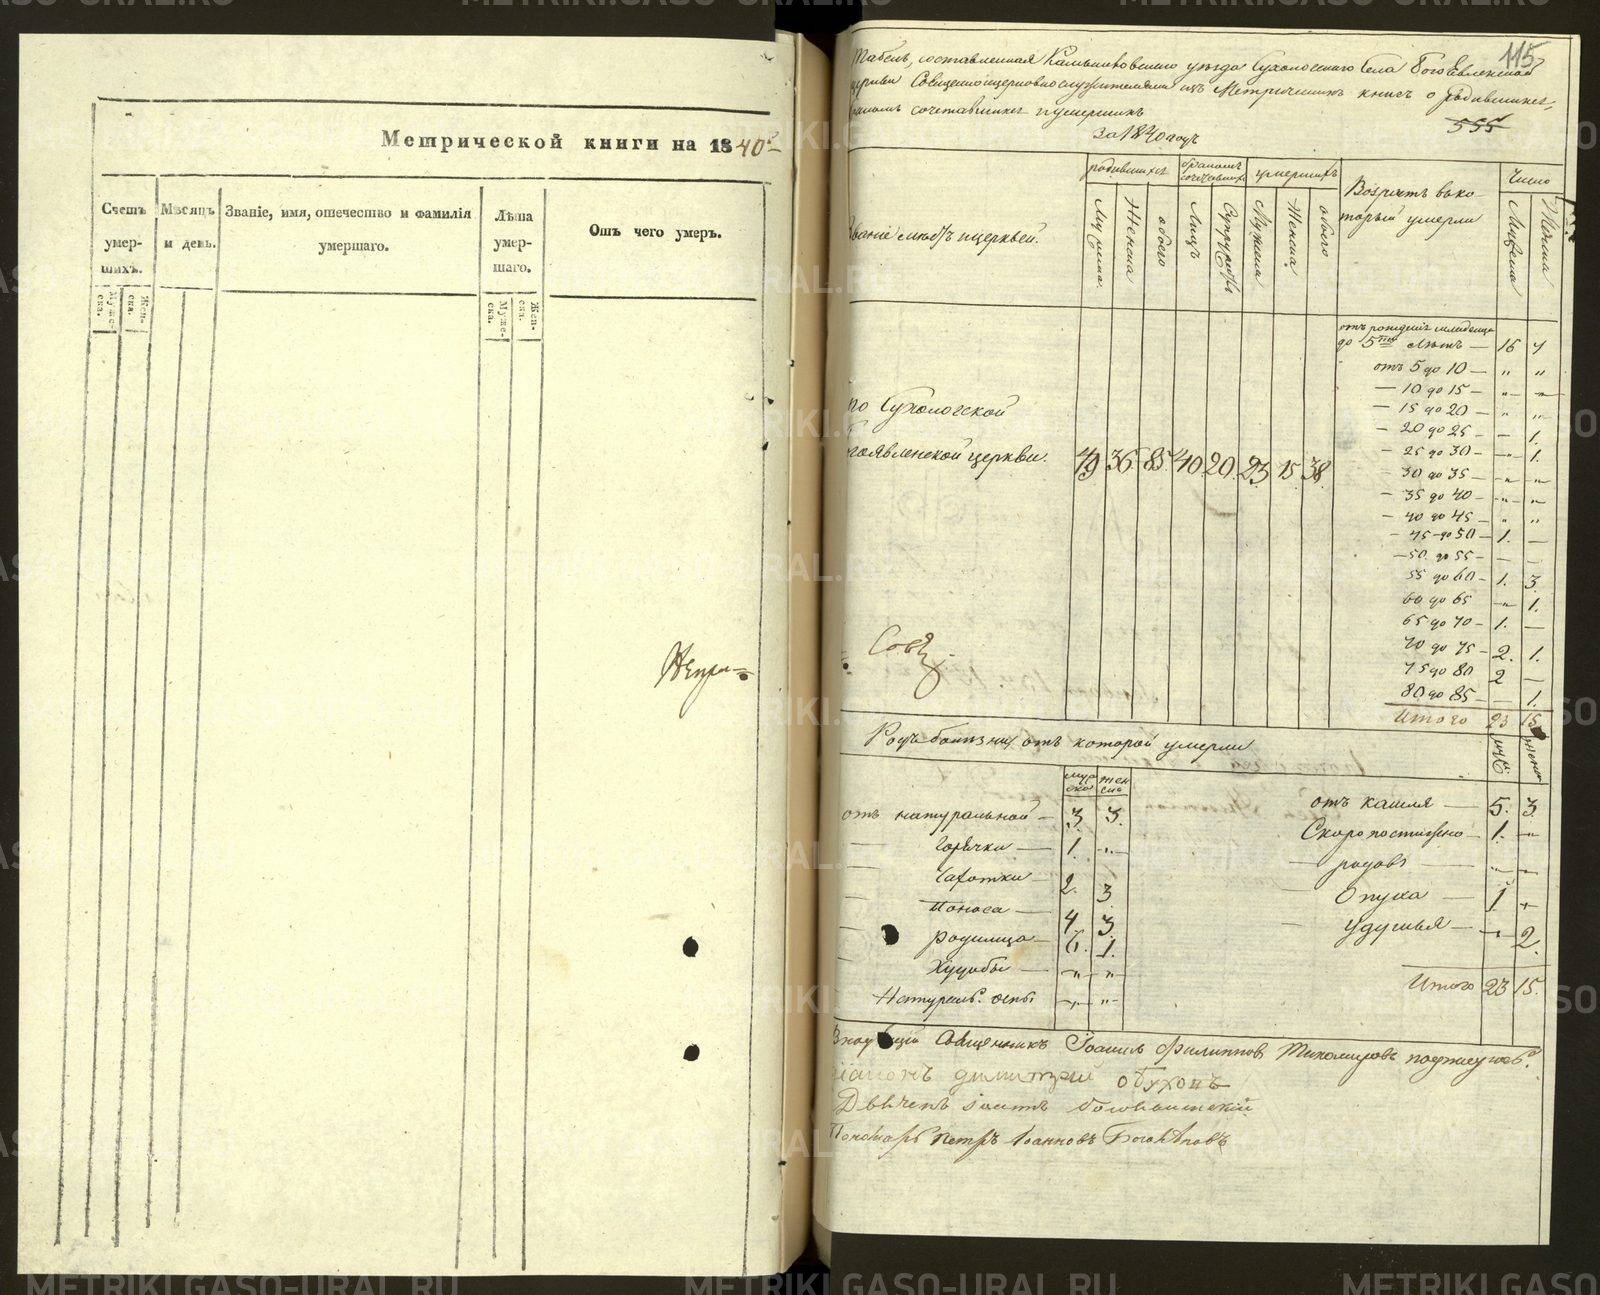 Метрической книги на 1840
Счетъ умер- шихъ.
Муже- ска.
Жен- ска.
Мѣсяцъ и день.
Званіе, имя, отечество и фамилія умершаго.
Лѣта умер- шаго.
Муже- ска.
Жен- ска.
Отъ чего умеръ.
115
Табель, составленная Камышловскаго уѣзда Сухоложскаго села Богоявленской
церкви Священноцерковнослужителями изъ Метрическихъ книгъ о родившихся,
сочетавшихся и умершихъ
555
За 1840 годъ
родившихся
бракомъ сочетавшихся
умершихъ
Возрастъ въ ко- торый умерли
Число
Женска
обоего
Лицъ
Супружествъ
Мужеска
Женска
обоего
церквей.
отъ рожденія младенца
до 5 лѣтъ — 16 7
отъ 5 до 10 — „ „
— 10 до 15 — „ „
— 15 до 20 — „ „
— 20 до 25 — — 1.
— 25 до 30 — „ 1.
— 30 до 35 — „ „
— 35 до 40 — „ „
— 40 до 45 — „ „
— 45 до 50 — 1. —
— 50 до 55 — — —
55 до 60 — 1. 3
60 до 65 „ 1.
65 до 70 — 1. —
70 до 75 — 2. 1.
75 до 80 2 —
80 до 85 — 1.
Итого 23 15
по Сухоложской
Богоявленской церкви. 49 36 85 40 20. 23 15 38.
Родъ болѣзни отъ которой умерли
муж ска
жен ска
отъ натуральной — 3. 3.
Горячки — 1. „
Чахотки — 2. 3
Поноса — 4. 3.
родимца — 6. 1.
Худобы — „ „
Натурал. оспы „ „
отъ кашля — 5. 3.
Скоропостижно — 1. „
родовъ — „ —
Опуха — 1
удушья — „ 2.
Итого 23 15.
Священникъ Іоаннъ Филиппов Тихомировъ
діаконъ Димитрій Обуховъ
Пономарь Петръ Іоанновъ